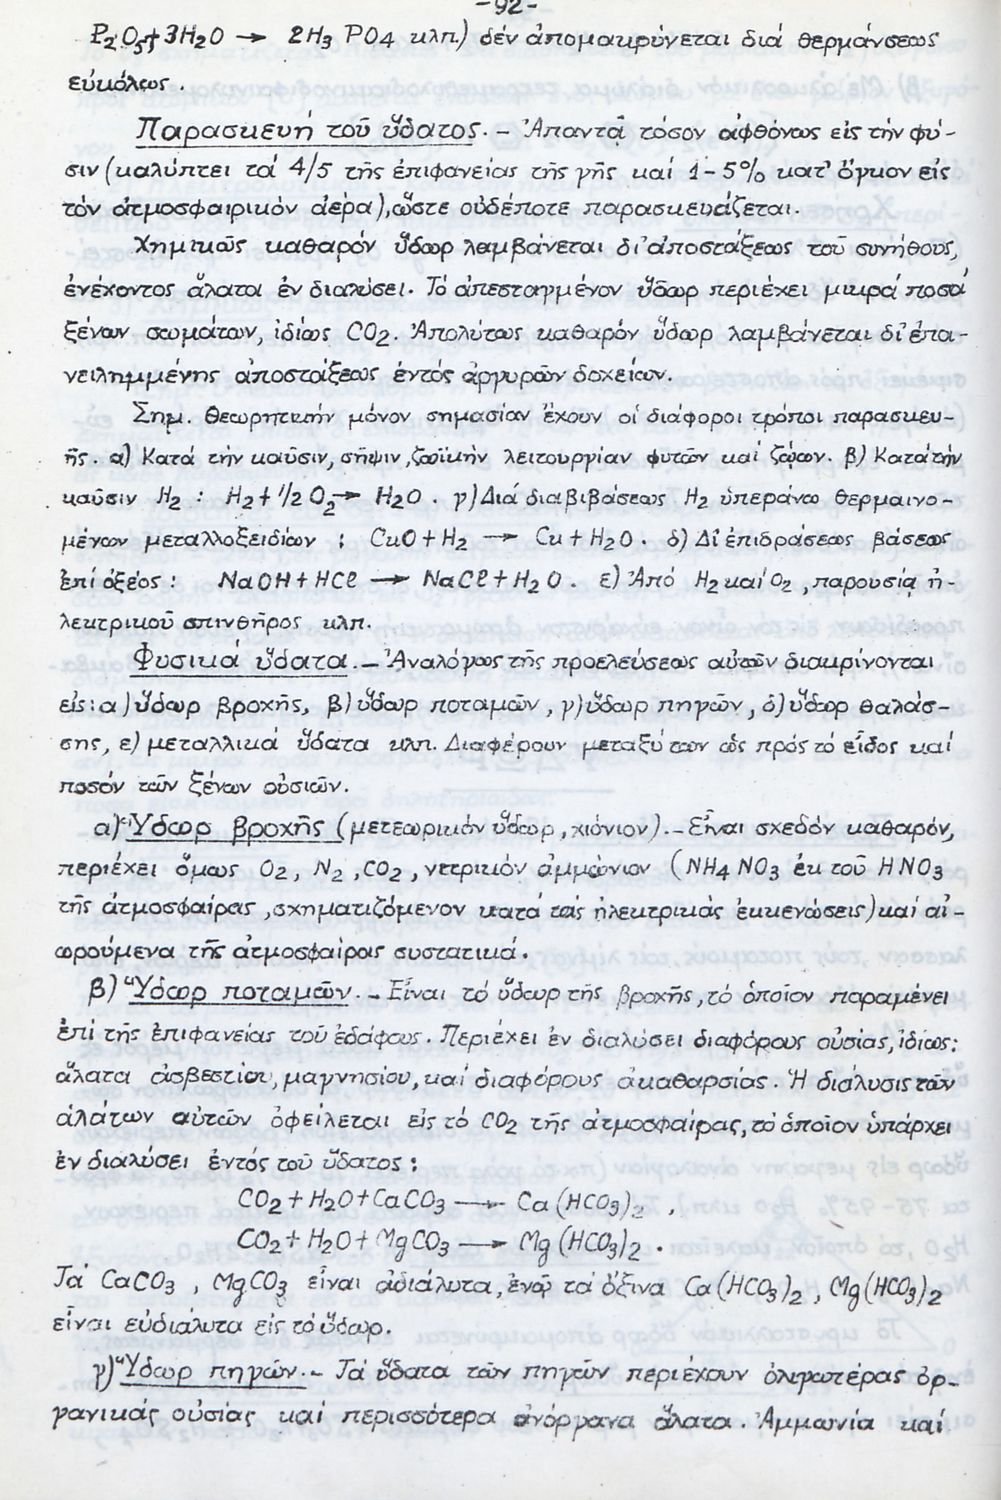 -92-
P₂O₅+3H₂O → 2H₃PO4 κλπ.) δέν ἀπομακρύνεται διά θερμάνσεως
εὐκόλως.
Παρασκευή τοῦ ὕδατος.- Ἀπαντᾷ τόσον ἀφθόνως εἰς τήν φύ-
σιν (καλύπτει τά 4/5 τῆς ἐπιφανείας τῆς γῆς καί 1-5% κατ' ὄγκον εἰς
τόν ἀτμοσφαιρικόν ἀέρα), ὥστε οὐδέποτε παρασκευάζεται.
Χημικῶς καθαρόν ὕδωρ λαμβάνεται δι' ἀποστάξεως τοῦ συνήθους,
ἐνέχοντος ἅλατα ἐν διαλύσει. Τό ἀπεσταγμένον ὕδωρ περιέχει μικρά ποσά
ξένων σωμάτων, ἰδίως CO₂. Ἀπολύτως καθαρόν ὕδωρ λαμβάνεται δι' ἐπα-
νειλημμένης ἀποστάξεως ἐντός ἀργυρῶν δοχείων.
Σημ. Θεωρητικήν μόνον σημασίαν ἔχουν οἱ διάφοροι τρόποι παρασκευ-
ῆς. α) Κατά τήν καῦσιν, σῆψιν, ζωϊκήν λειτουργίαν φυτῶν καί ζώων. β) Κατά τήν
καῦσιν H₂ : H₂+1/2O₂→ H₂O. γ) Διά διαβιβάσεως H₂ ὑπεράνω θερμαινο-
μένων μεταλλοξειδίων : CuO+H₂ → Cu+H₂O. δ) Δι' ἐπιδράσεως βάσεως
ἐπί ὀξέος : NaOH+HCl → NaCl+H₂O. ε) Ἀπό H₂ καί O₂, παρουσίᾳ ἠ-
λεκτρικοῦ σπινθῆρος κλπ.
Φυσικά ὕδατα.- Ἀναλόγως τῆς προελεύσεως αὐτῶν διακρίνονται
εἰς: α) ὕδωρ βροχῆς, β) ὕδωρ ποταμῶν, γ) ὕδωρ πηγῶν, δ) ὕδωρ θαλάσ-
σης, ε) μεταλλικά ὕδατα κλπ. Διαφέρουν μεταξύ των ὡς πρός τό εἶδος καί
ποσόν τῶν ξένων οὐσιῶν.
α) Ὕδωρ βροχῆς (μετεωρικόν ὕδωρ, χιόνιον).- Εἶναι σχεδόν καθαρόν,
περιέχει ὅμως O₂, N₂, CO₂, νιτρικόν ἀμμώνιον (NH₄NO₃ ἐκ τοῦ HNO₃
τῆς ἀτμοσφαίρας, σχηματιζόμενον κατά τάς ἠλεκτρικάς ἐκκενώσεις) καί αἰ-
ωρούμενα τῆς ἀτμοσφαίρας συστατικά.
β) Ὕδωρ ποταμῶν.- Εἶναι τό ὕδωρ τῆς βροχῆς, τό ὁποῖον παραμένει
ἐπί τῆς ἐπιφανείας τοῦ ἐδάφους. Περιέχει ἐν διαλύσει διαφόρους οὐσίας, ἰδίως:
ἅλατα ἀσβεστίου, μαγνησίου, καί διαφόρους ἀκαθαρσίας. Ἡ διάλυσις τῶν
ἁλάτων αὐτῶν ὀφείλεται εἰς τό CO₂ τῆς ἀτμοσφαίρας, τό ὁποῖον ὑπάρχει
ἐν διαλύσει ἐντός τοῦ ὕδατος :
CO₂+H₂O+CaCO₃ → Ca(HCO₃)₂ ,
CO₂+H₂O+MgCO₃ → Mg(HCO₃)₂ .
Τά CaCO₃ , MgCO₃ εἶναι ἀδιάλυτα, ἐνῷ τά ὄξινα Ca(HCO₃)₂ , Mg(HCO₃)₂
εἶναι εὐδιάλυτα εἰς τό ὕδωρ.
γ) Ὕδωρ πηγῶν.- Τά ὕδατα τῶν πηγῶν περιέχουν ὀλιγωτέρας ὀρ-
γανικάς οὐσίας καί περισσότερα ἀνόργανα ἅλατα. Ἀμμωνία καί